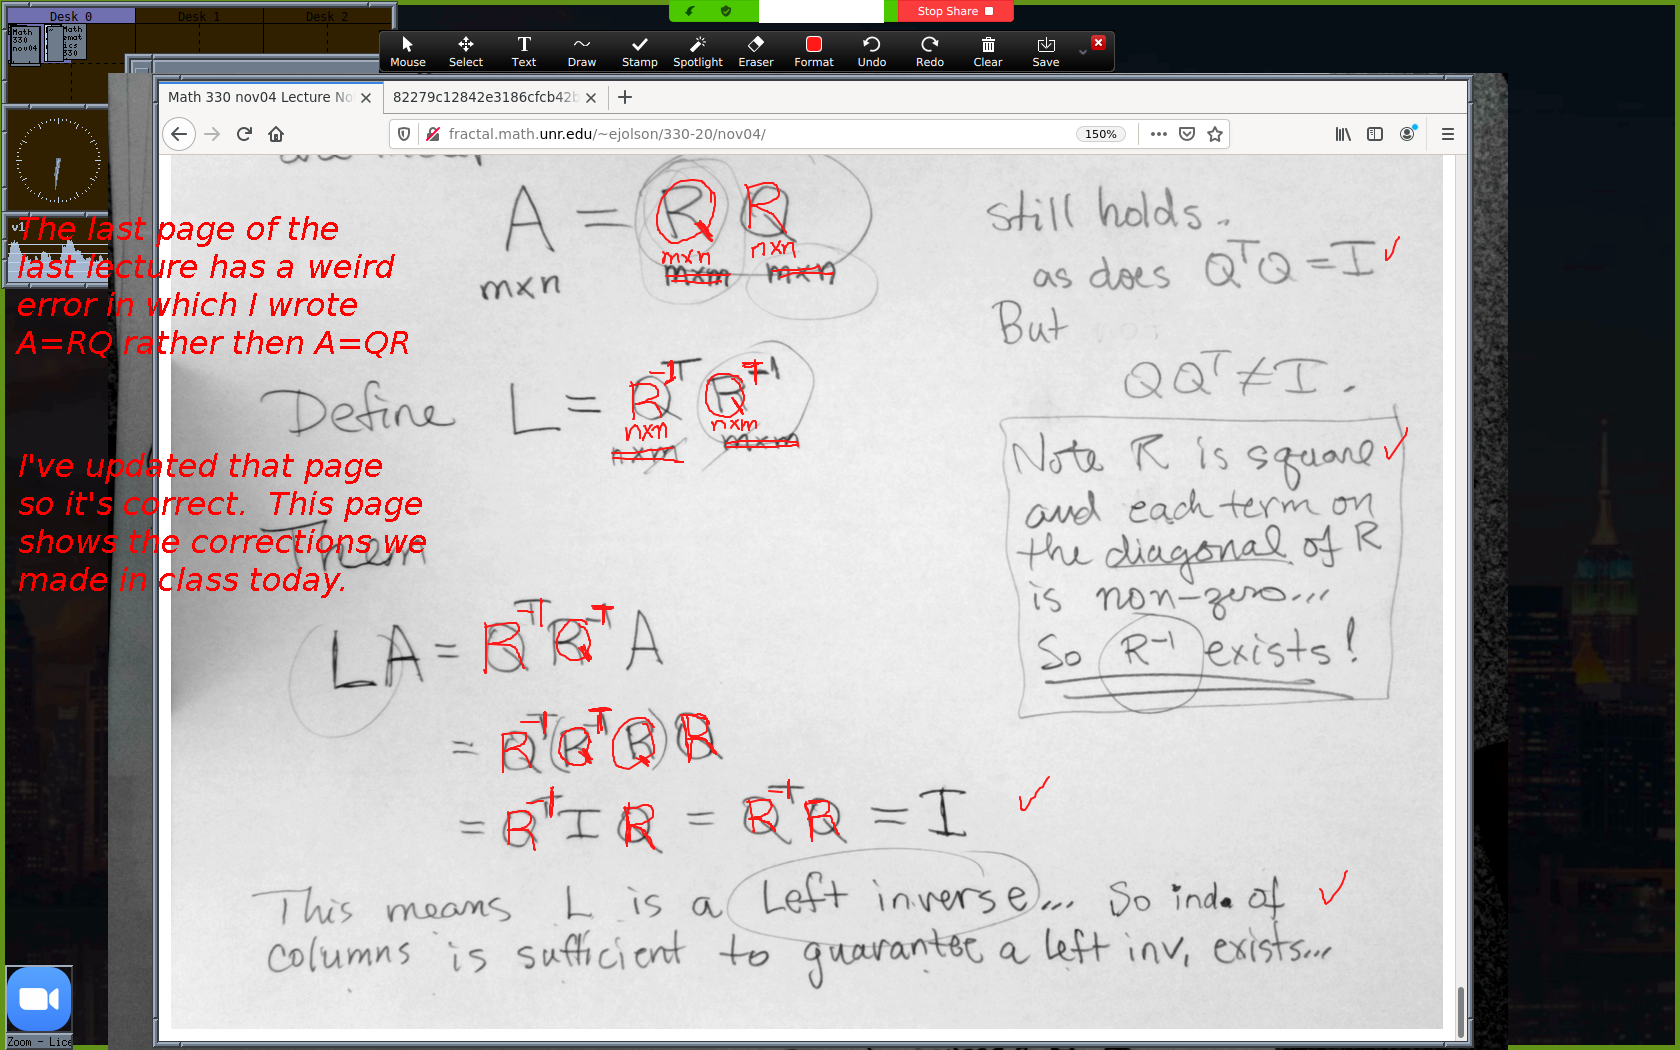 Desk 0 Desk 1 Desk 2
Math 330 nov04
Math emat ics 330
Stop Share
Mouse Select Text Draw Stamp Spotlight Eraser Format Undo Redo Clear Save
Math 330 nov04 Lecture No
82279c12842e3186cfcb42b
fractal.math.unr.edu/~ejolson/330-20/nov04/
150%
v1
The last page of the
last lecture has a weird
error in which I wrote
A=RQ rather then A=QR
I've updated that page
so it's correct. This page
shows the corrections we
made in class today.
A = Q R
m×n m×n n×n
m×m m×n
Define L = R⁻¹ Qᵀ
n×n n×m
n×m m×m
Then
LA = R⁻¹ Qᵀ A
= R⁻¹ (Qᵀ Q) R
= R⁻¹ I R = R⁻¹ R = I
This means L is a Left inverse... So ind. of
columns is sufficient to guarantee a left inv. exists...
still holds.
as does QᵀQ = I
But
QQᵀ ≠ I.
Note R is square
and each term on
the diagonal of R
is non-zero...
So R⁻¹ exists!
Zoom - Lice